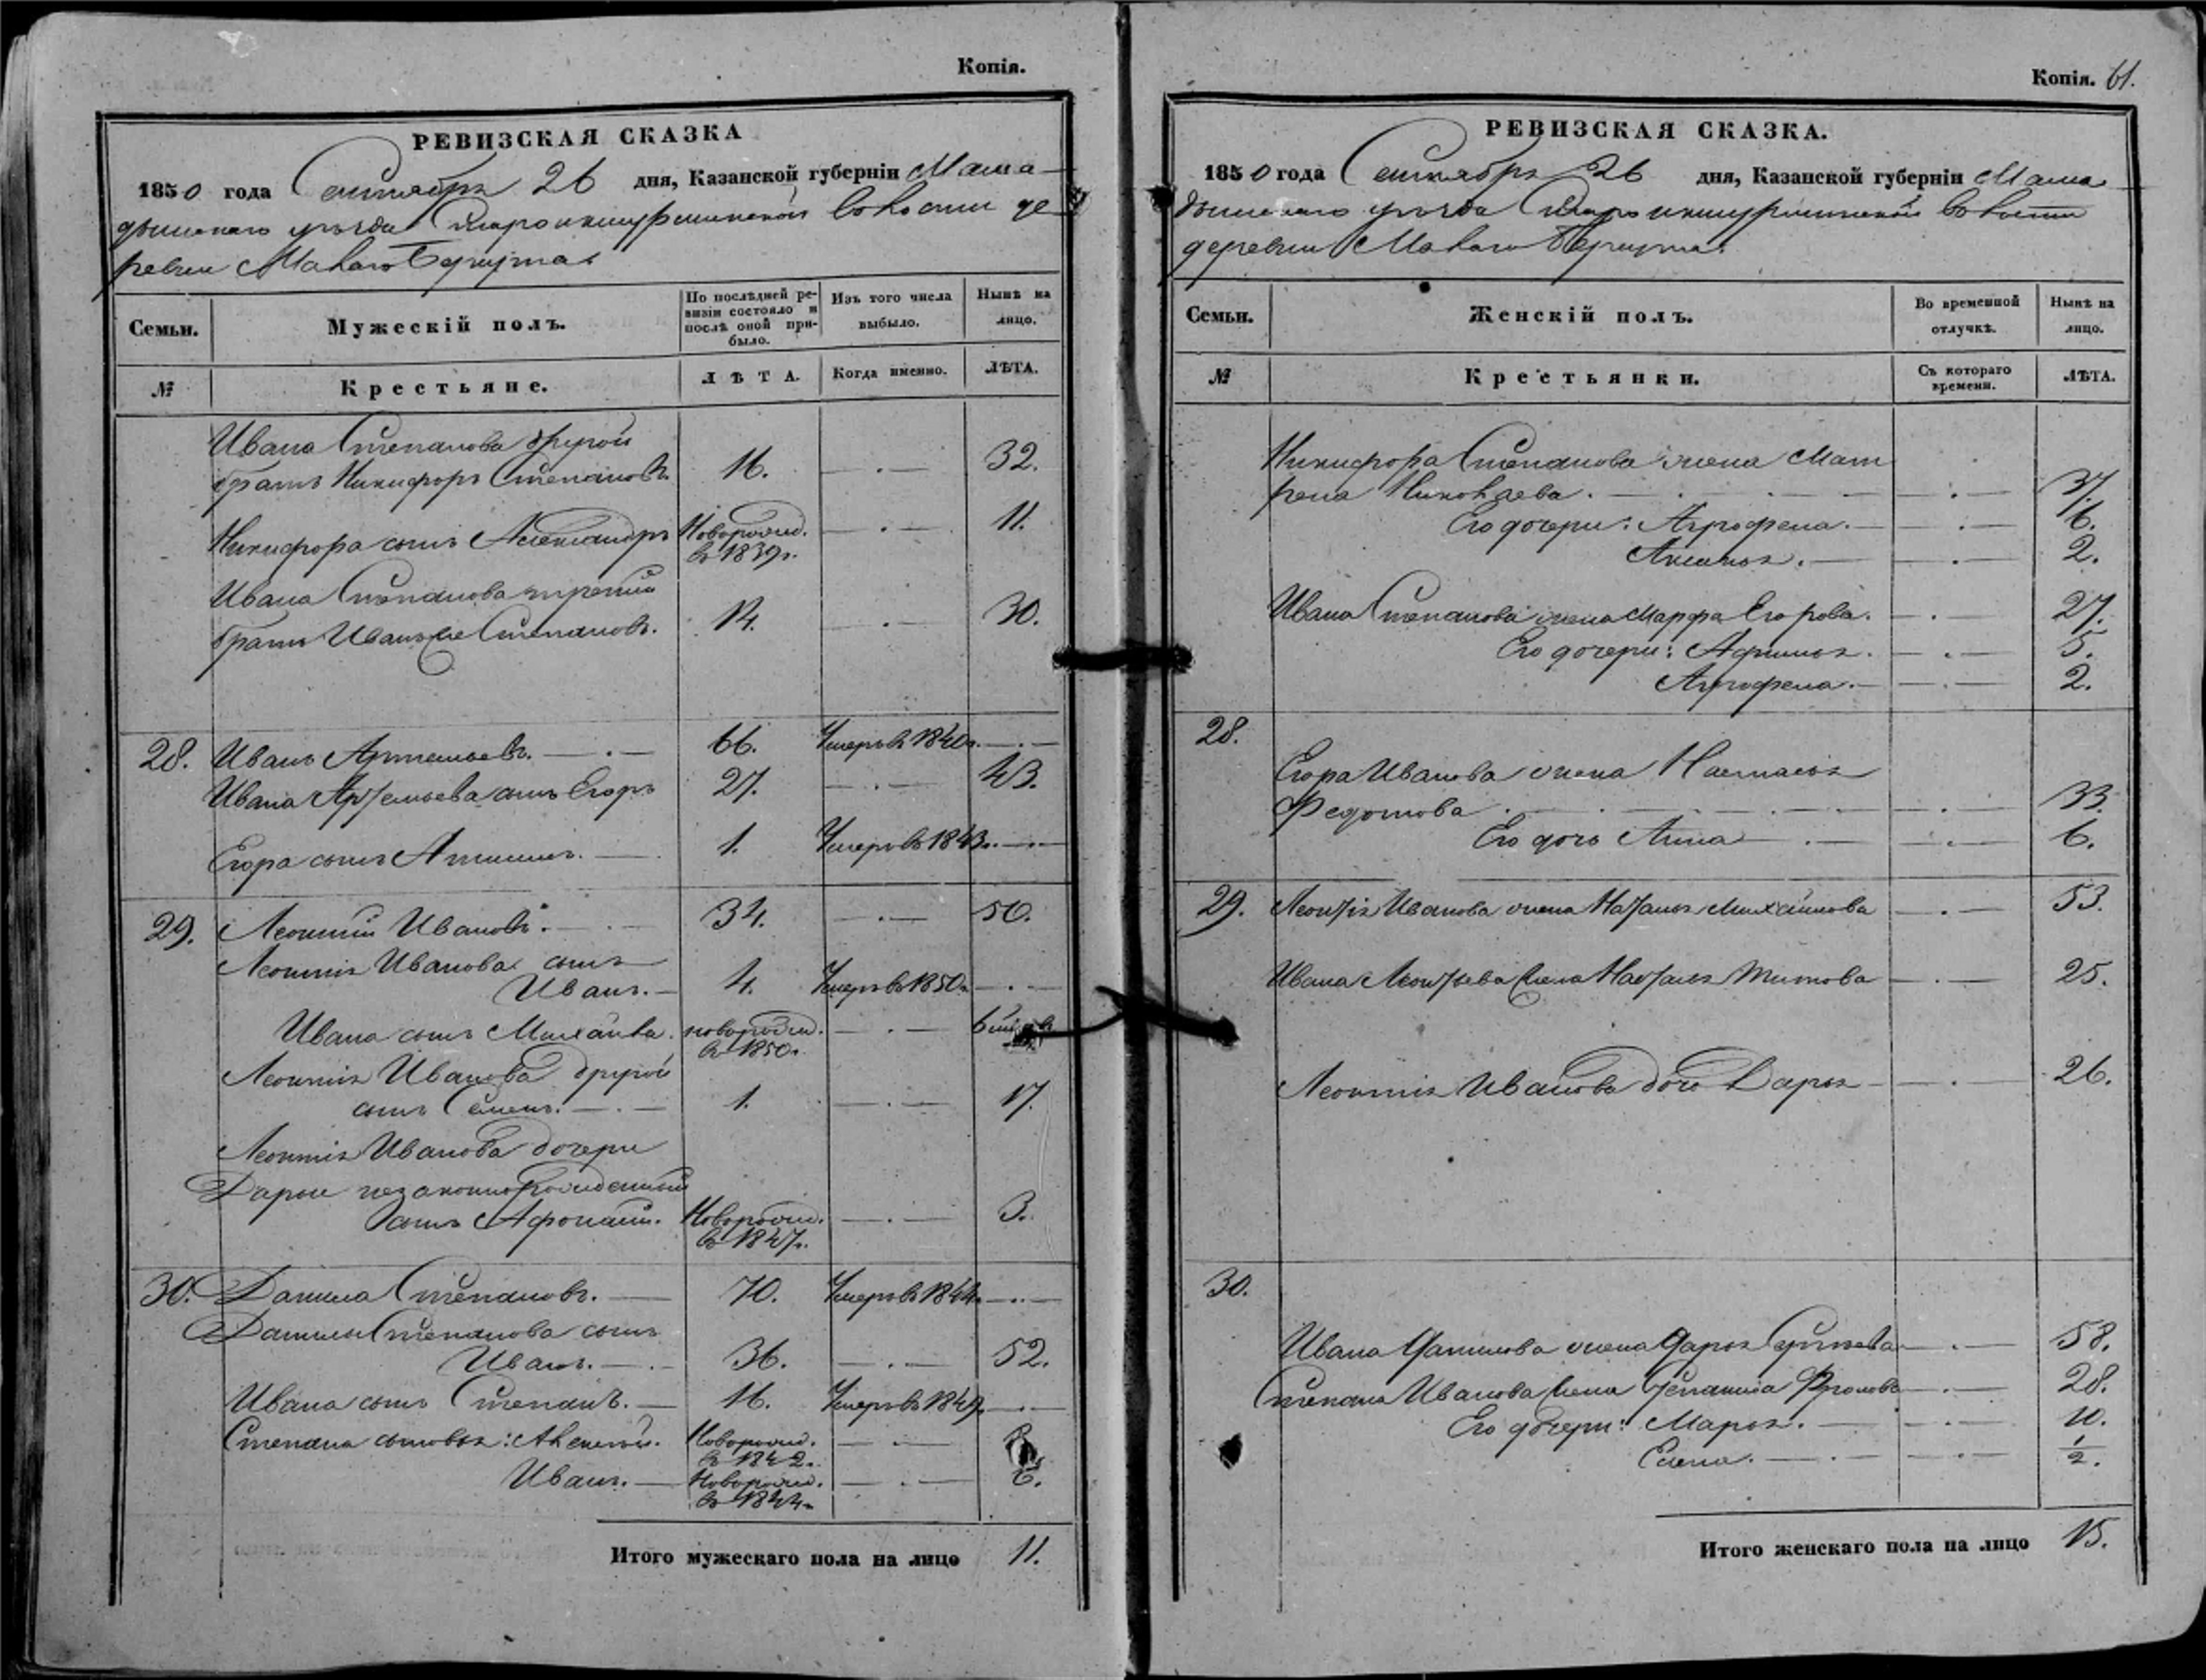 Копія.
РЕВИЗСКАЯ СКАЗКА
1850 года Сентября 26 дня, Казанской губерніи Мама-
дышскаго уѣзда Староикшурминской волости де-
ревни Малаго
Семьи.
Мужескій полъ.
По послѣдней ре-
визіи состояло и
послѣ оной при-
было.
Изъ того числа
выбыло.
Нынѣ на
лицо.
№
Крестьяне.
ЛѢТА.
Когда именно.
ЛѢТА.
Ивана Степанова другой
братъ Никифоръ Степановъ 16. 32.
Никифора сынъ Александръ Новорожд. 11.
въ 1839г.
Ивана Степанова третий
братъ Иванъ же Степановъ. 14. 30.
28. Иванъ Артемьевъ. 66. Умеръ въ 1840г.
Ивана Артемьева сынъ Егоръ 27. 43.
Егора сынъ 1. Умеръ въ 1843г.
29. Леонтий Ивановъ. 34. 50.
Леонтія Иванова сынъ
Иванъ. 4. Умеръ въ 1850г.
Ивана сынъ Михайла. новорожд. 6
въ 1850г.
Леонтія Иванова другой
сынъ Семенъ. 1. 17.
Леонтія Иванова дочери
Дарьи незаконнорожденный
сынъ Афонасій. Новорожд. 3.
въ 1847г.
30. Данила Степановъ. 70. Умеръ въ 1844г.
Данилы Степанова сынъ
Иванъ. 36. 52.
Ивана сынъ Степанъ. 16. Умеръ въ 1849г.
Степана сыновья: Алексѣй. Новорожд.
въ 1842г.
Иванъ. Новорожд. 6.
въ 1844г.
Итого мужескаго пола на лицо 11.
Копія. 61.
РЕВИЗСКАЯ СКАЗКА.
1850 года Сентября 26 дня, Казанской губерніи Мама-
дышскаго уѣзда Староикшурминской волости
деревни Малаго
Семьи.
Женскій полъ.
Во временной
отлучкѣ.
Нынѣ на
лицо.
№
Крестьянки.
Съ котораго
времени.
ЛѢТА.
Никифора Степанова жена Мат
рена Николаева. 37.
Его дочери: Агрофена. 6.
Аксинья. 2.
Ивана Степанова жена Марфа Егорова. 27.
Его дочери: Афимья. 5.
Агрофена. 2.
28.
Егора Иванова жена Настасья
Федотова 33.
Его дочь Анна 6.
29. Леонтія Иванова жена Наталья Михайлова 53.
Ивана Леонтьева жена Наталья Титова 25.
Леонтія Иванова дочь Дарья 26.
30.
Ивана Данилова жена Дарья Сергѣева 58.
Степана Иванова жена Степанида Фролова 28.
Его дочери: Марья. 10.
Елена. 1/2.
Итого женскаго пола на лицо 15.